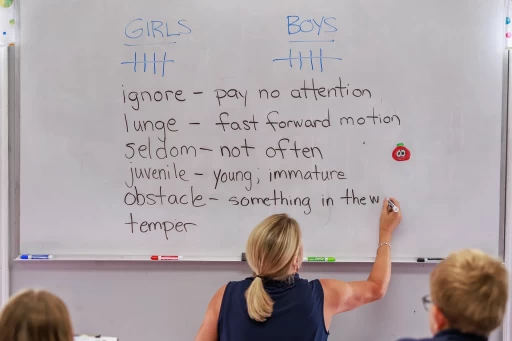 GIRLS
BOYS
ignore – pay no attention
lunge – fast forward motion
seldom – not often
juvenile – young; immature
obstacle – something in the w
temper